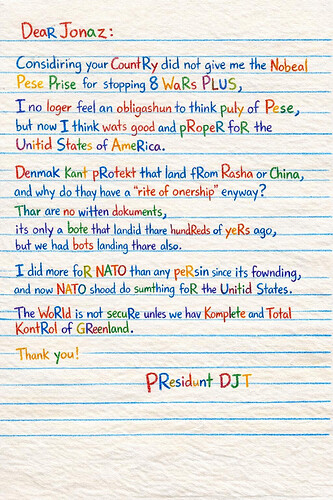 DeaR Jonaz:
Considiring your CountRy did not give me the Nobeal
Pese Prise for stopping 8 WaRs PLUS,
I no loger feel an obligashun to think puly of Pese,
but now I think wats good and pRopeR foR the
Unitid States of AmeRica.
Denmak Kant pRotekt that land fRom Rasha or China,
and why do thay have a “rite of onership” enyway?
Thar are no witten dokuments,
its only a bote that landid thare hundReds of yeRs ago,
but we had bots landing thare also.
I did more foR NATO than any peRsin since its fownding,
and now NATO shood do sumthing foR the Unitid States.
The WoRld is not secuRe unles we hav Komplete and Total
KontRol of GReenland.
Thank you!
PResidunt DJT